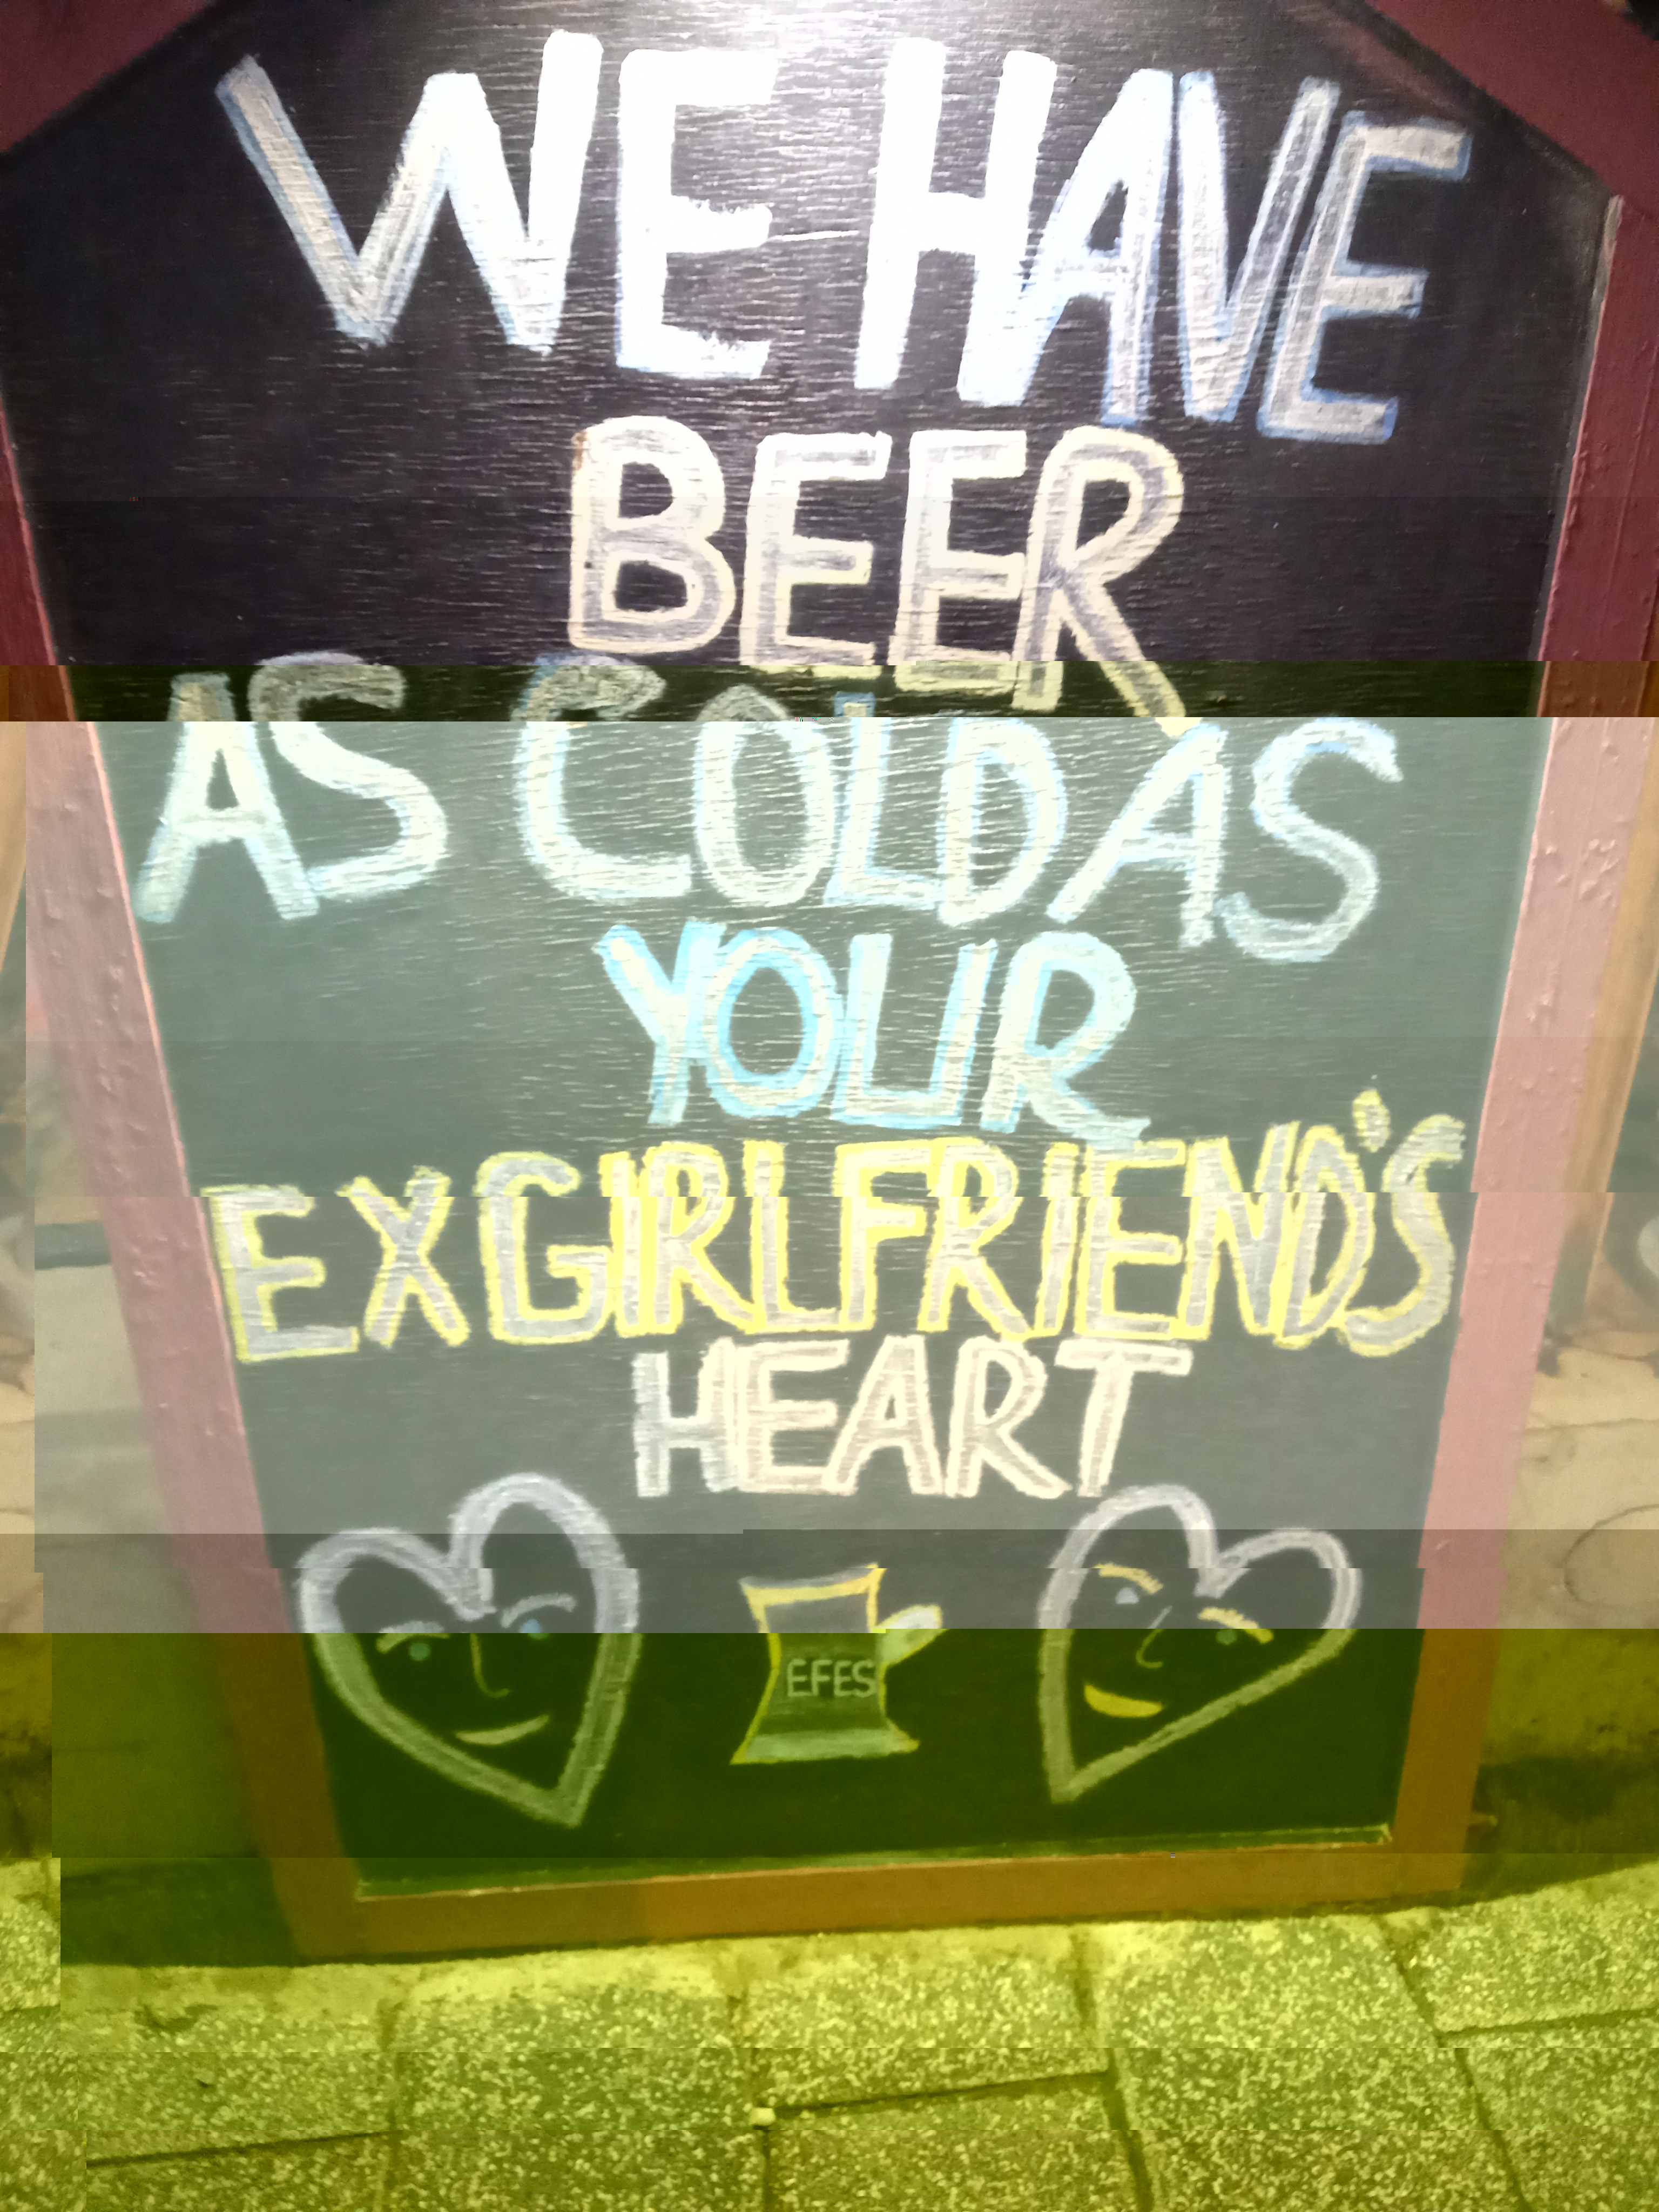 WE HAVE
BEER
AS COLD AS
YOUR
EX GIRLFRIEND'S
HEART
EFES